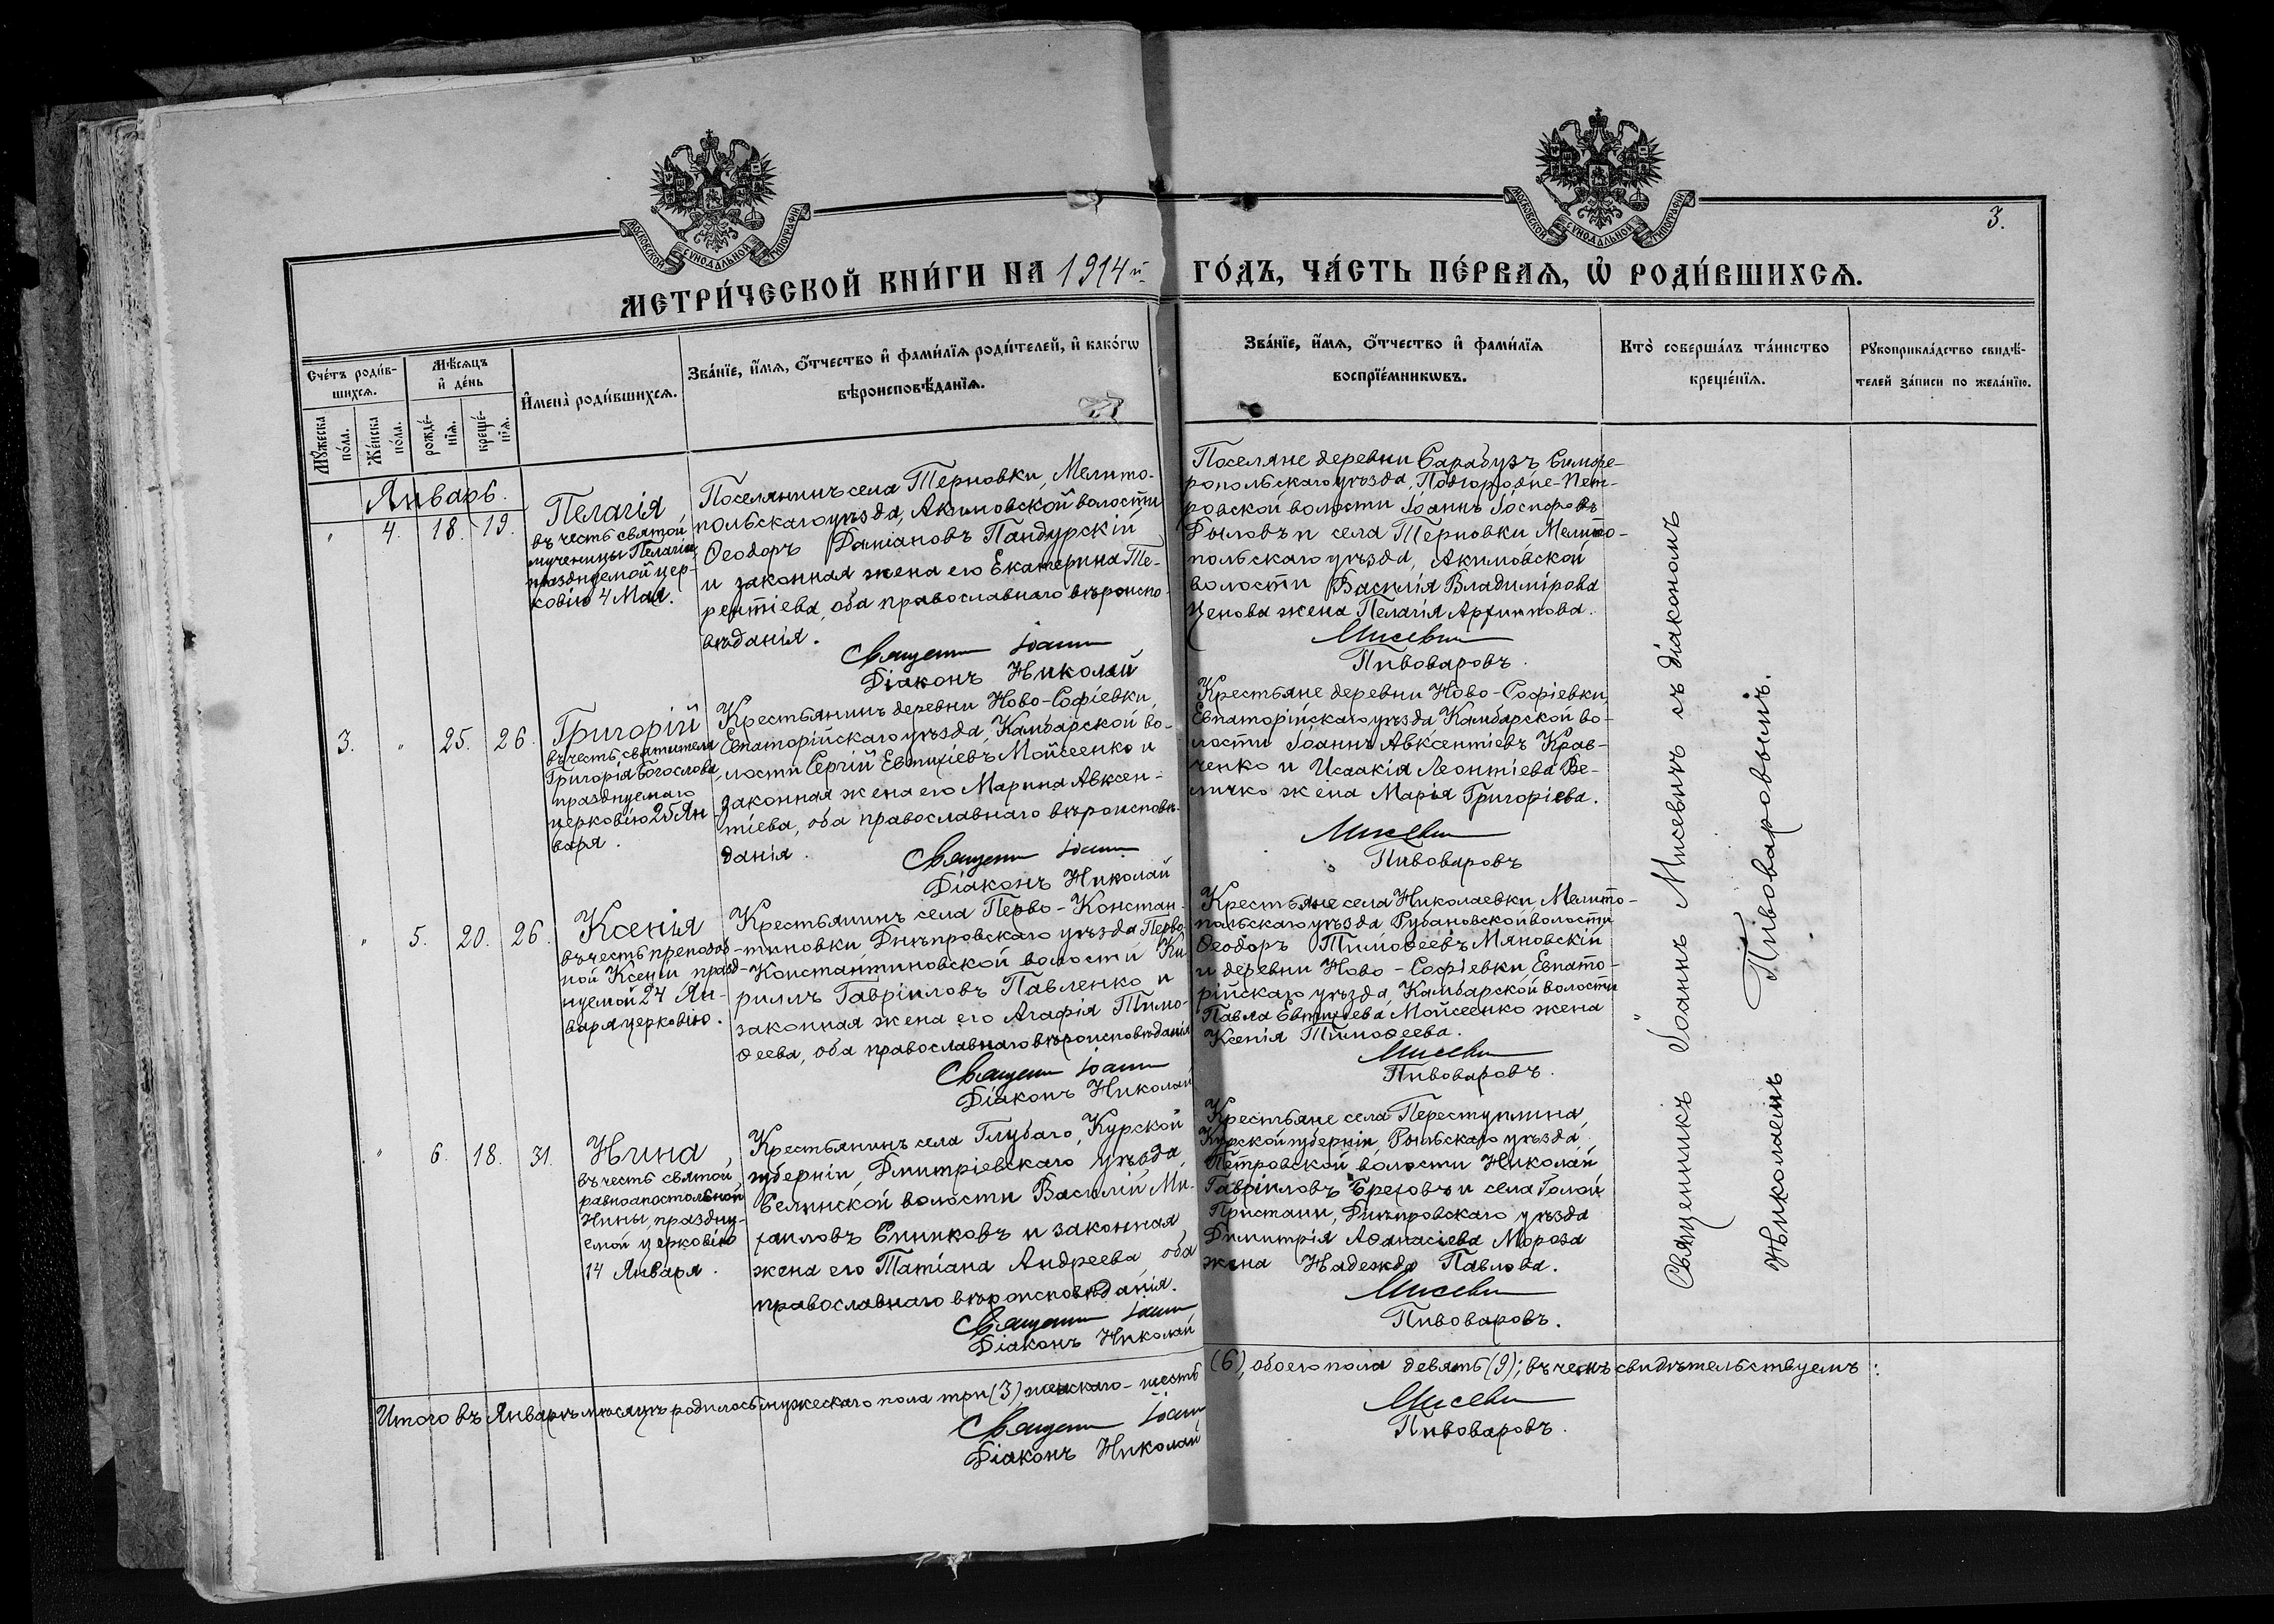 МОСКОВСКОЙ СѴНОДАЛЬНОЙ ТИПОГРАФІИ
МОСКОВСКОЙ СѴНОДАЛЬНОЙ ТИПОГРАФІИ
3.
МЕТРИ́ЧЕСКОЙ КНИ́ГИ НА 1914й ГО́ДЪ, ЧА́СТЬ ПЕ́РВАЯ, Ѽ РОДИ́ВШИХСЯ.
Сче́тъ роди́в-
шихся.
Мꙋ́жеска
по́ла.
Же́нска
по́ла.
Мѣ́сяцъ
и҆ де́нь
рожде́-
нїя.
креще́-
нїя.
И҆мена̀ роди́вшихся.
Зва́нїе, и҆́мя, ѻ҆́тчество и҆ фами́лїя роди́телей, и҆ како́гѡ
вѣроисповѣ́данїя.
Зва́нїе, и҆́мя, ѻ҆́тчество и҆ фами́лїя
воспрїе́мникѡвъ.
Кто̀ соверша́лъ та́инство
креще́нїя.
Рꙋкоприкла́дство свидѣ́-
телей за́писи по жела́нїю.
Январь.
" 4. 18. 19.
Пелагія
въ честь святой
мученицы Пелагіи,
празднуемой цер-
ковію 4 Мая.
Поселянинъ села Терновки, Мелито-
польскаго уѣзда, Акимовской волости
Ѳеодоръ Даміановъ Пандурскій
и законная жена его Екатерина Те-
рентіева, оба православнаго вѣроиспо-
вѣданія.
Священн Іоанн
Діаконъ Николай
Поселяне деревни Сарабузъ Симфе-
ропольскаго уѣзда, Подгородне-Пет-
ровской волости Іоаннъ Іосифовъ
Рыловъ и села Терновки Мелито-
польскаго уѣзда, Акимовской
волости Василія Владимірова
Ценова жена Пелагія Архиппова.
Мисевич
Пивоваровъ.
3. " 25. 26.
Григорій
въ честь святителя
Григорія Богослова,
празднуемаго
церковію 25 Ян-
варя.
Крестьянинъ деревни Ново-Софіевки,
Евпаторійскаго уѣзда, Камбарской во-
лости Сергій Евтихіевъ Мойсеенко и
законная жена его Марина Авксен-
тіева, оба православнаго вѣроисповѣ-
данія.
Священн Іоанн
Діаконъ Николай
Крестьяне деревни Ново-Софіевки,
Евпаторійскаго уѣзда Камбарской во-
лости Іоаннъ Авксентіевъ Крав-
ченко и Исаакія Леонтіева Ве-
личко жена Марія Григоріева.
Мисевич
Пивоваровъ
" 5. 20. 26.
Ксенія
въ честь преподоб-
ной Ксеніи празд-
нуемой 24 Ян-
варя церковію.
Крестьянинъ села Перво-Констан-
тиновки Днѣпровскаго уѣзда Перво-
Константиновской волости Ки-
риллъ Гавріиловъ Павленко и
законная жена его Агафія Тимо-
ѳеева, оба православнаго вѣроисповѣданія
Священн Іоанн
Діаконъ Николай
Крестьяне села Николаевки, Мелито-
польскаго уѣзда Рубановской волости
Ѳеодоръ Тимоѳеевъ Мяновскій
и деревни Ново-Софіевки, Евпато-
рійскаго уѣзда, Камбарской волости
Павла Евтихіева Мойсеенко жена
Ксенія Тимоѳеева.
Мисевич
Пивоваровъ.
" 6. 18. 31.
Нина
въ честь святой
равноапостольной
Нины, праздну-
емой церковію
14 Января.
Крестьянинъ села Глубаго, Курской
губерніи, Дмитріевскаго уѣзда,
Селинской волости Василій Ми-
хаиловъ Ениковъ и законная
жена его Татіана Андреева, оба
православнаго вѣроисповѣданія.
Священн Іоанн
Діаконъ Николай
Крестьяне села Переступлина,
Курской губерніи, Рыльскаго уѣзда,
Петровской волости Николай
Гавріиловъ Бреховъ и села Голой
Пристани, Днѣпровскаго уѣзда
Димитрія Аѳанасіева Мороза
жена Надежда Павлова.
Мисевич
Пивоваровъ.
Священникъ Іоаннъ Мисевичъ съ діакономъ
Николаемъ Пивоваровымъ.
Итого въ Январѣ мѣсяцѣ родилось мужескаго пола три (3), женскаго - шесть (6), обоего пола девять (9); въ чемъ свидѣтельствуемъ:
Священн Іоанн Мисевич
Діаконъ Николай Пивоваровъ.